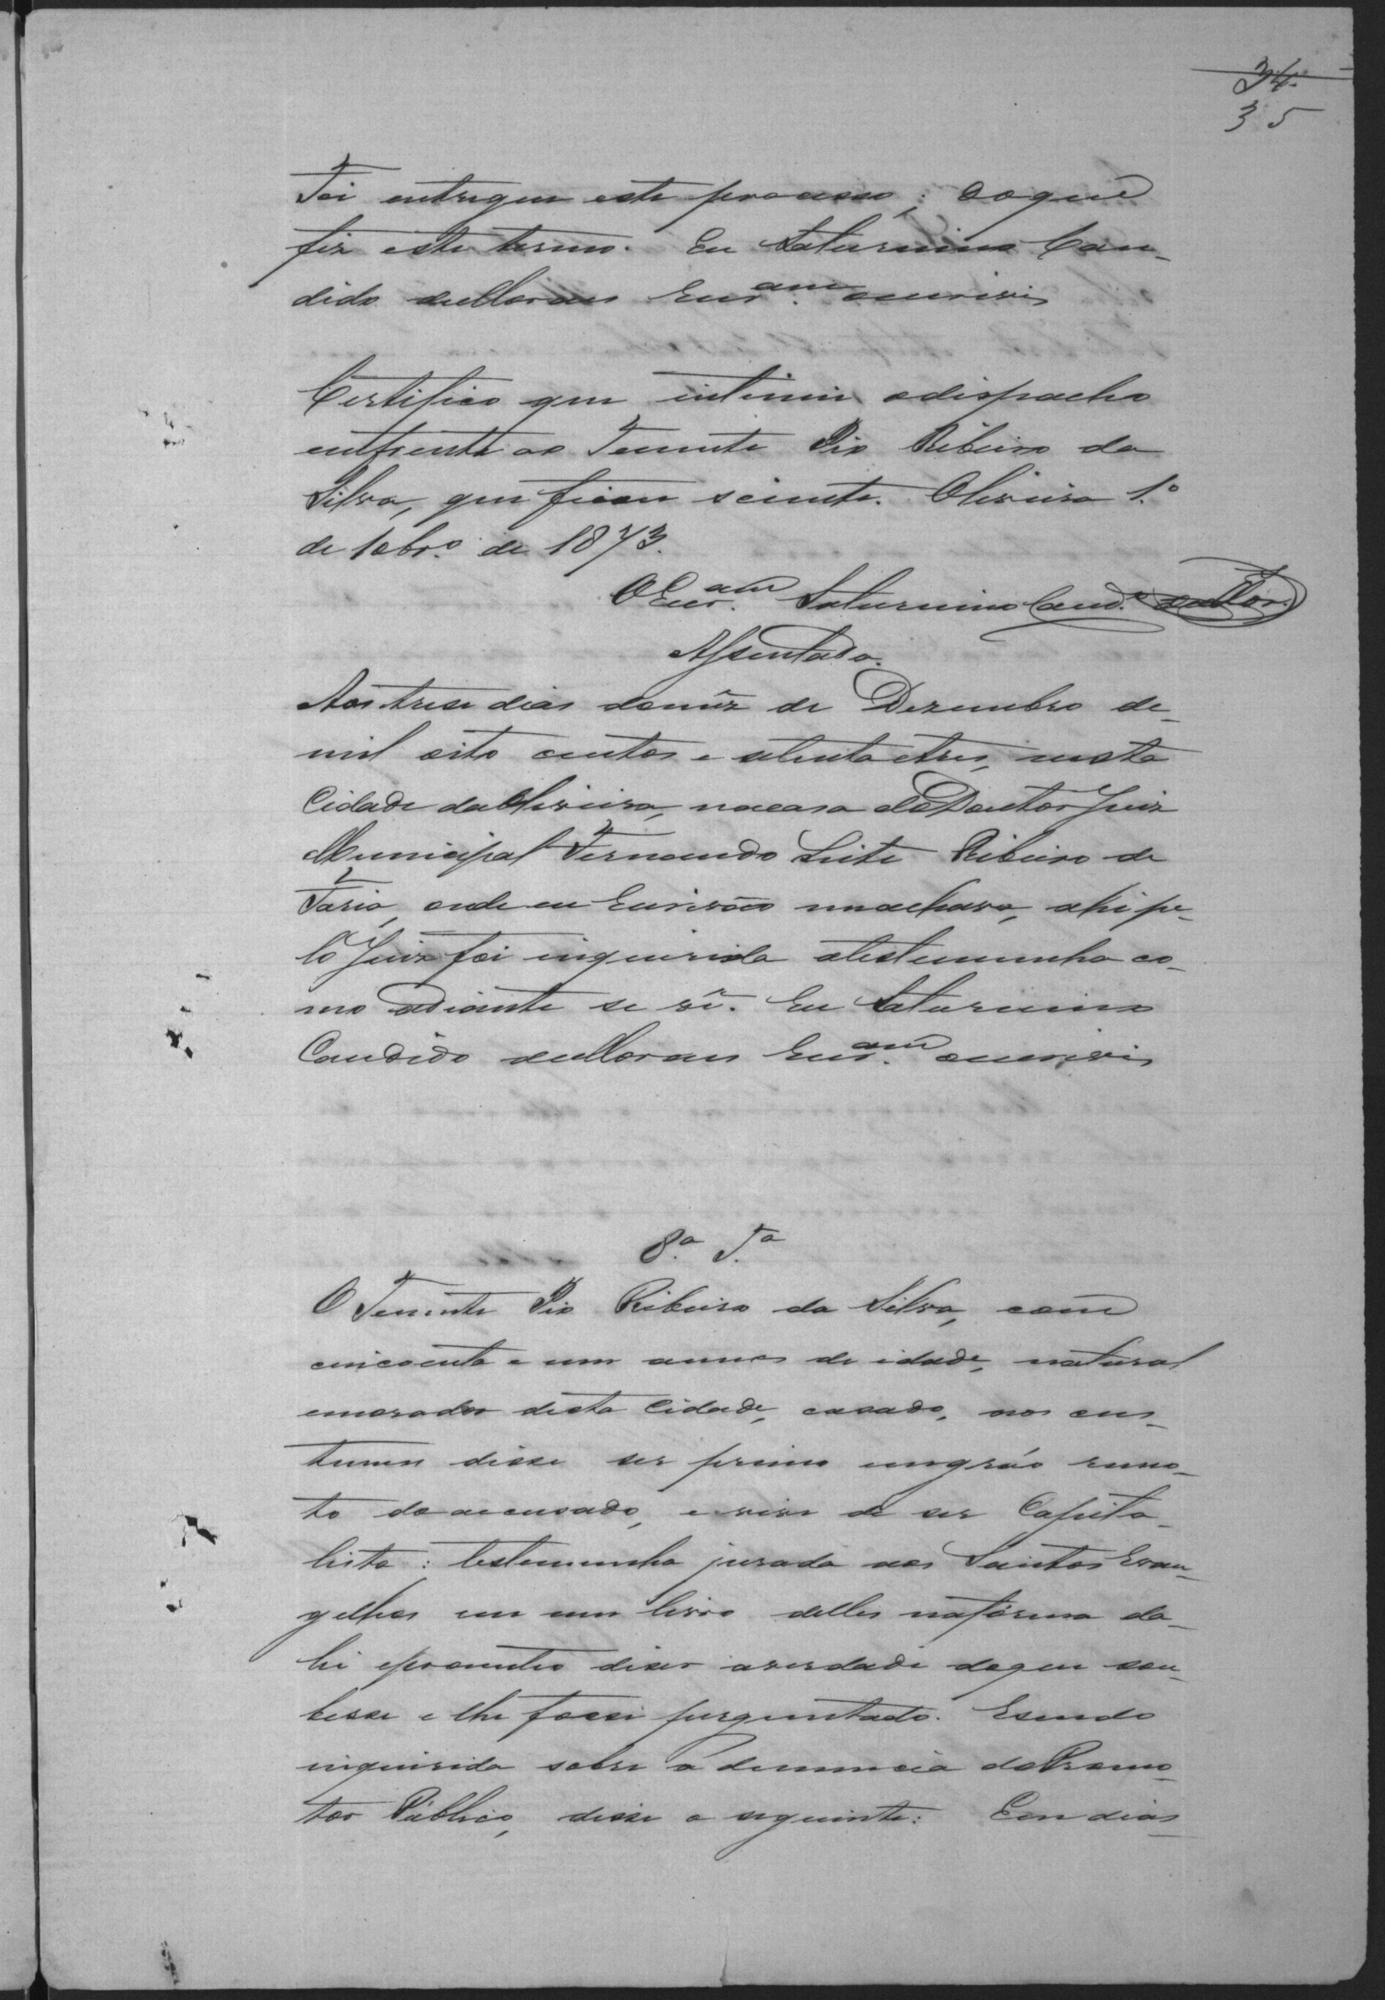 34
35
foi entregue este processo; do que
fiz este termo. Eu Saturnino Can-
dido de Moraes Escr.am escrivi
Certifico que intimei o dispacho
em frente ao Tenente Pio Ribeiro da
Silva, que ficou sciente. Oliveira 1.º
de 10br.º de 1873.
O Escr.am Saturnino Cand.º de Mor.
Assentada.
Aos trese dias do mez de Dezembro de
mil oito centos e setenta e tres, nesta
Cidade da Oliveira, na casa do Doutor Juiz
Municipal Fernando Leite Ribeiro de
Faria, onde eu Escrivão me achava, ahi pe-
lo Juiz foi inquirida a testemunha co-
mo adiante se vê. Eu Saturnino
Candido de Moraes Escr.am escrivi
8.ª T.ª
O Tenente Pio Ribeiro da Silva, com
cincoenta e um annos de idade, natural
e morador desta Cidade, casado, nos cus-
tumes disse ser primo em gráo remo-
to do accusado, e vive de ser Capita-
lista: testemunha jurada aos Santos Evan-
gelhos em um livro delles na forma da
lei e prometteo diser a verdade do que sou-
besse e lhe fosse perguntado. E sendo
inquirida sobre a denuncia do Promo-
tor Publico, disse o seguinte: Em dias